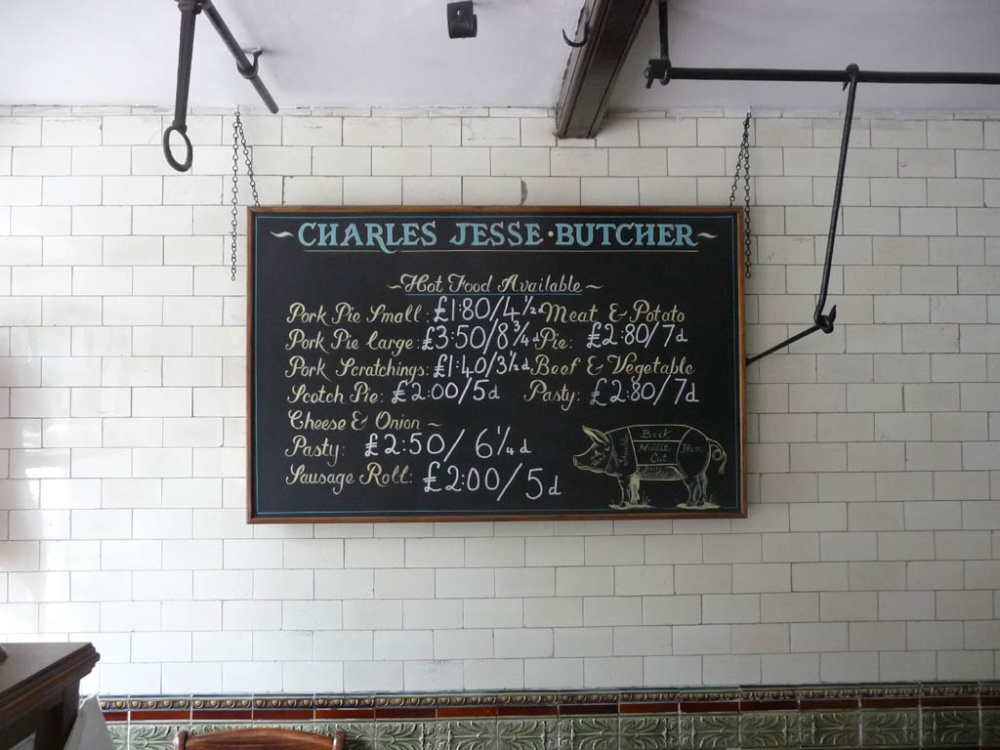 ~CHARLES JESSE·BUTCHER~
~Hot Food Available~
Pork Pie Small: £1:80/4½d
Pork Pie large: £3·50/8¾d
Pork Scratchings: £1:40/3½d
Scotch Pie: £2:00/5d
Cheese & Onion ~
Pasty: £2:50/6¼d
Sausage Roll: £2:00/5d
Meat & Potato
Pie: £2:80/7d
Beef & Vegetable
Pasty: £2:80/7d
Back
Middle
Cut
Ham